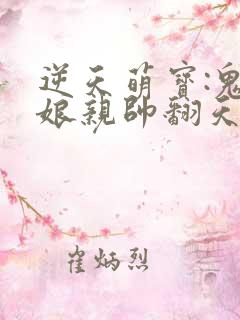 逆天萌寶:鬼
娘親帥翻天
崔炳烈